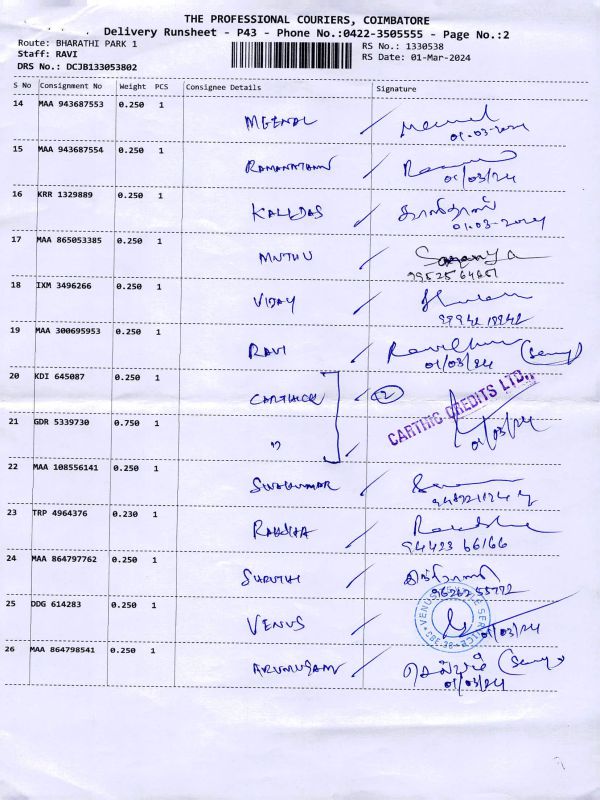 THE PROFESSIONAL COURIERS, COIMBATORE
Delivery Runsheet - P43 - Phone No.:0422-3505555 - Page No.:2
Route: BHARATHI PARK 1 RS No.: 1330538
Staff: RAVI RS Date: 01-Mar-2024
DRS No.: DCJB133053802
S No Consignment No Weight PCS Consignee Details Signature
14 MAA 943687553 0.250 1 MEENAL
01-03-2024
15 MAA 943687554 0.250 1 RAMANATHAN
01/03/24
16 KRR 1329889 0.250 1 KALIDAS காளிதாஸ்
01-03-2024
17 MAA 865053385 0.250 1 MUTHU Saranya
18 IXM 3496266 0.250 1 VIJAY
19 MAA 300695953 0.250 1 RAVI
01/03/24
20 KDI 645087 0.250 1 CARTHICK 2
CARTHIC CREDITS LTD.,
21 GDR 5339730 0.750 1 "
01/03/24
22 MAA 108556141 0.250 1 SIVAKUMAR
23 TRP 4964376 0.230 1
94423 66166
24 MAA 864797762 0.250 1 SHRUTHI
25 DDG 614283 0.250 1 VENUS
01/03/24
26 MAA 864798541 0.250 1 ARUMUGAM
01/03/24